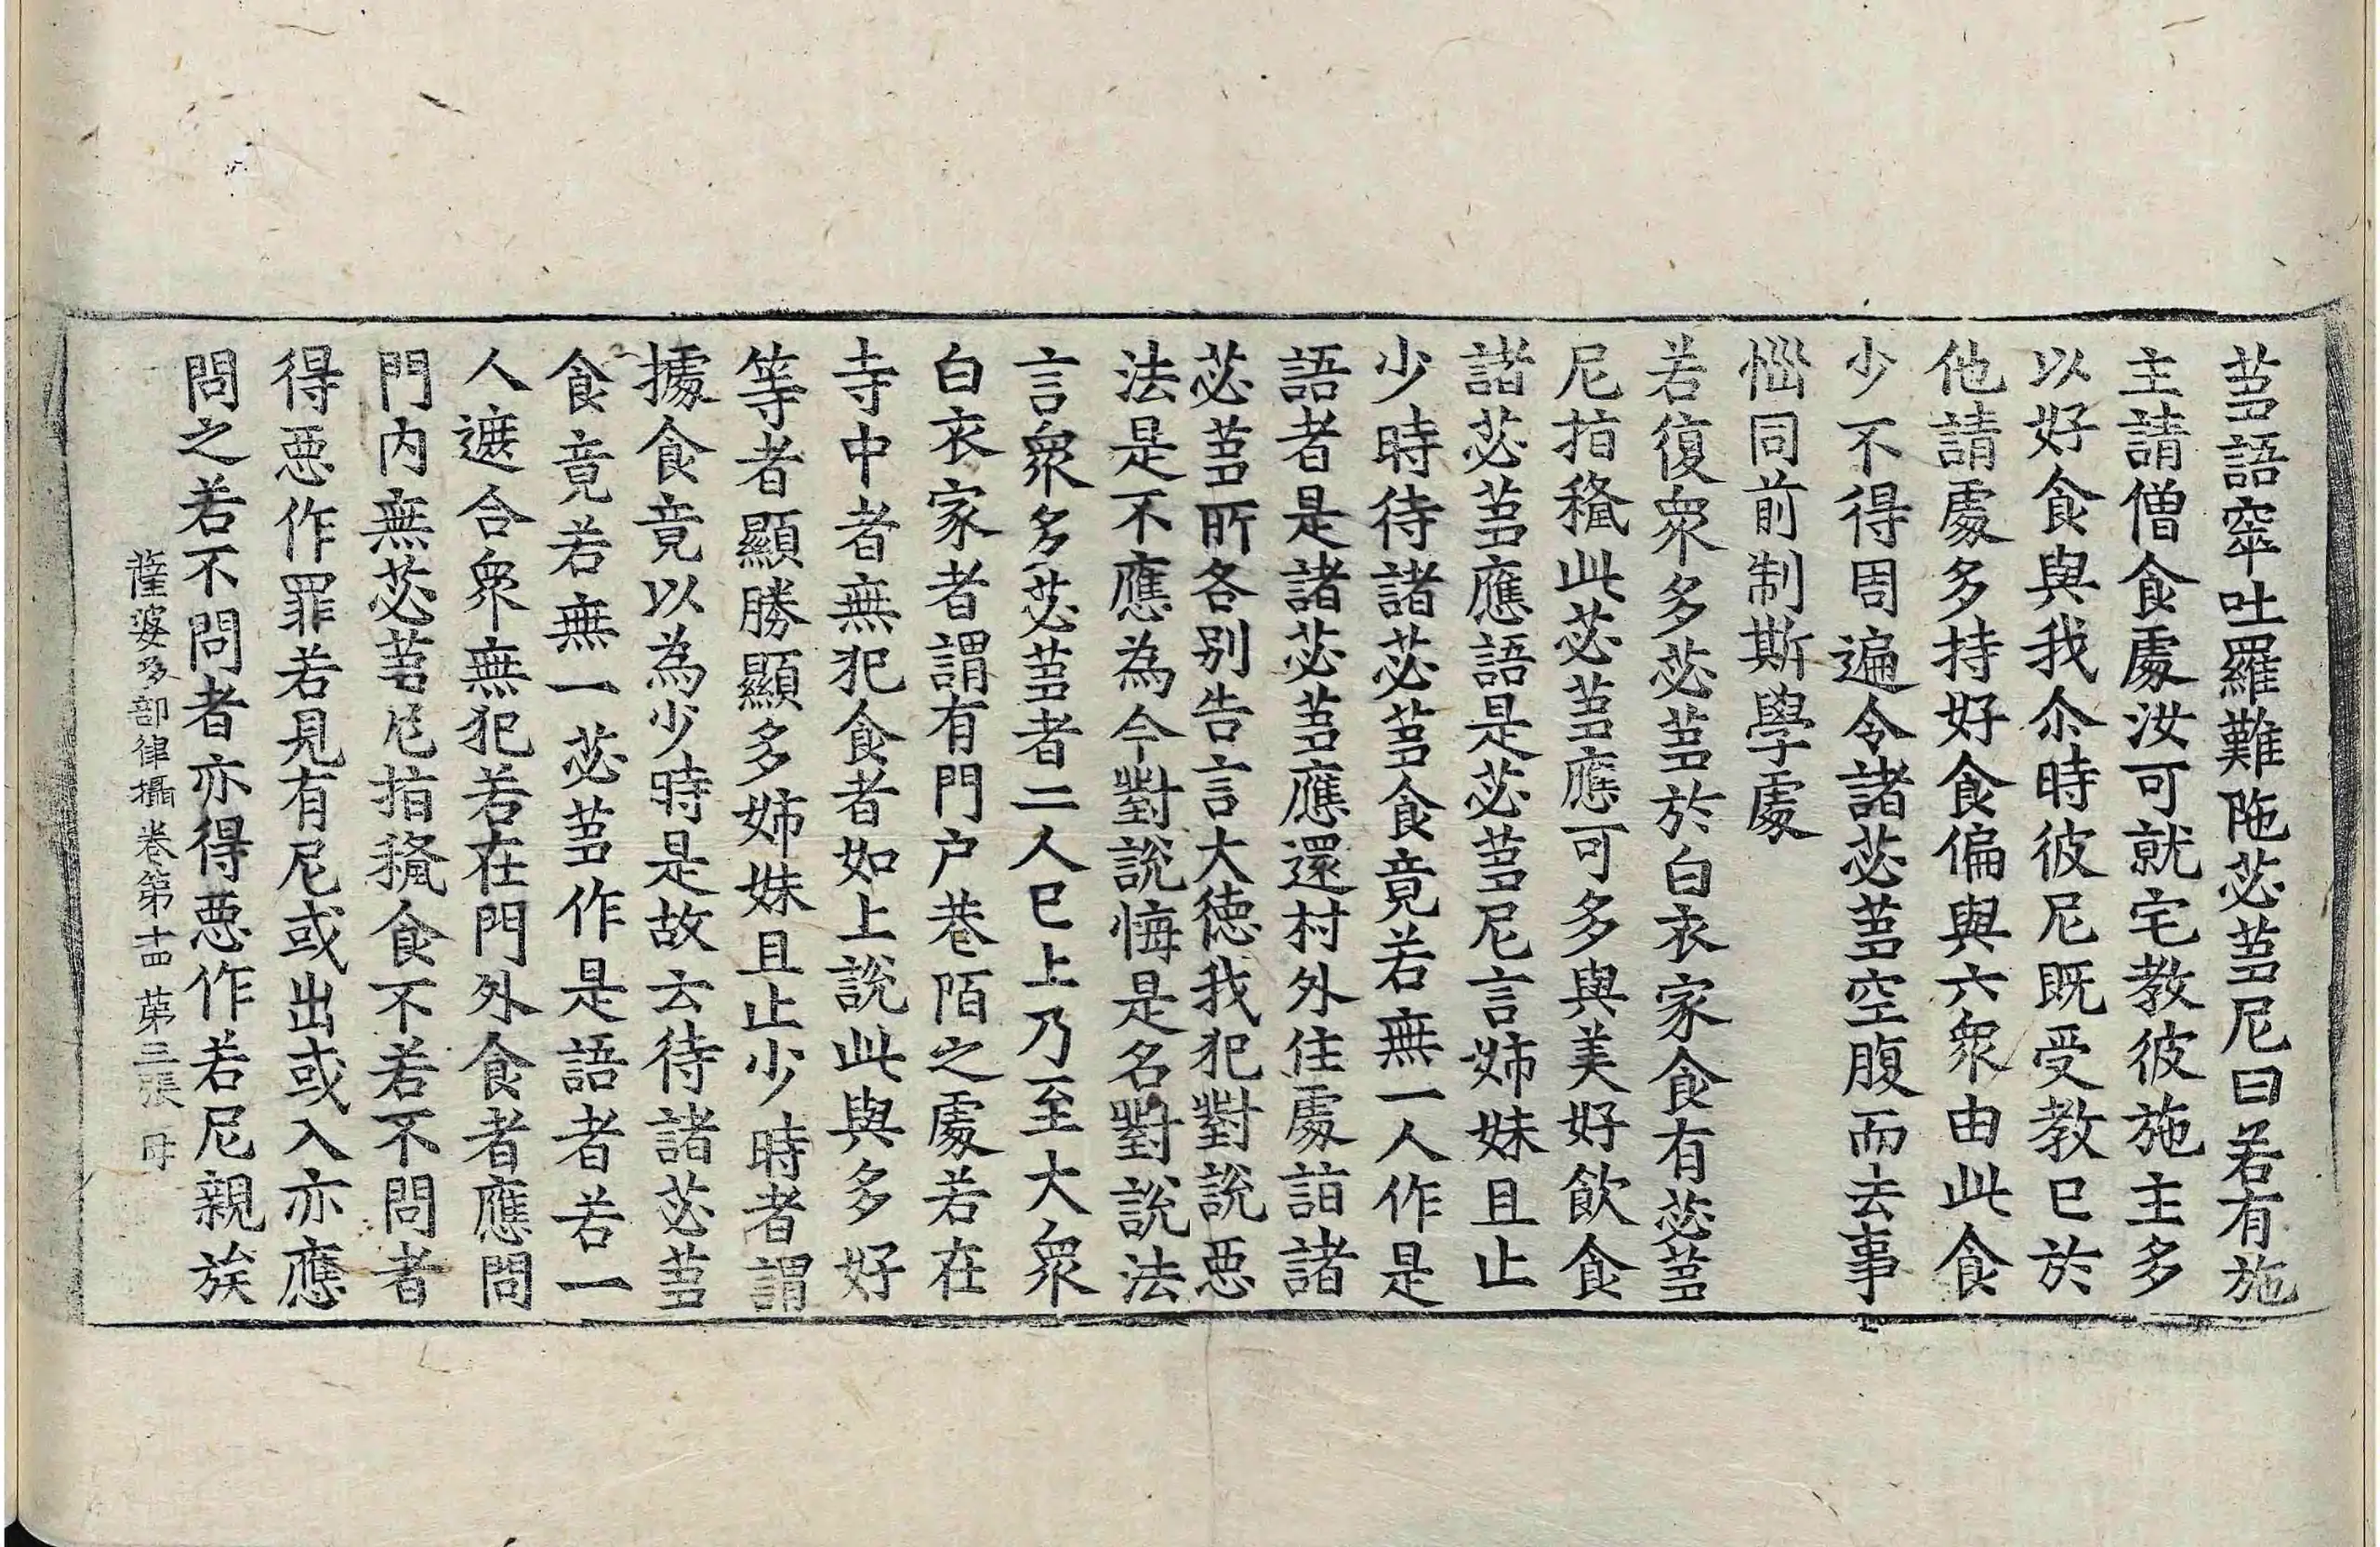 蒭語窣吐羅難陁苾蒭尼曰若有施
主請僧食處汝可就宅教彼施主多
以好食與我尒時彼尼既受教已於
他請處多持好食偏與六衆由此食
少不得周遍令諸苾蒭空腹而去事
惱同前制斯學處
若復衆多苾蒭於白衣家食有苾蒭
尼指授此苾蒭應可多與美好飲食
諸苾蒭應語是苾蒭尼言姉妹且止
少時待諸苾蒭食竟若無一人作是
語者是諸苾蒭應還村外住處詣諸
苾蒭所各別告言大德我犯對說惡
法是不應為今對說悔是名對說法
言衆多苾蒭者二人已上乃至大衆
白衣家者謂有門户巷陌之處若在
寺中者無犯食者如上說此與多好
等者顯勝顯多姉妹且止少時者謂
據食竟以為少時是故云待諸苾蒭
食竟若無一苾蒭作是語者若一
人遮合衆無犯若在門外食者應問
門内無苾蒭尼指授食不若不問者
得惡作罪若見有尼或出或入亦應
問之若不問者亦得惡作若尼親族
薩婆多部律攝卷第十四 第三張